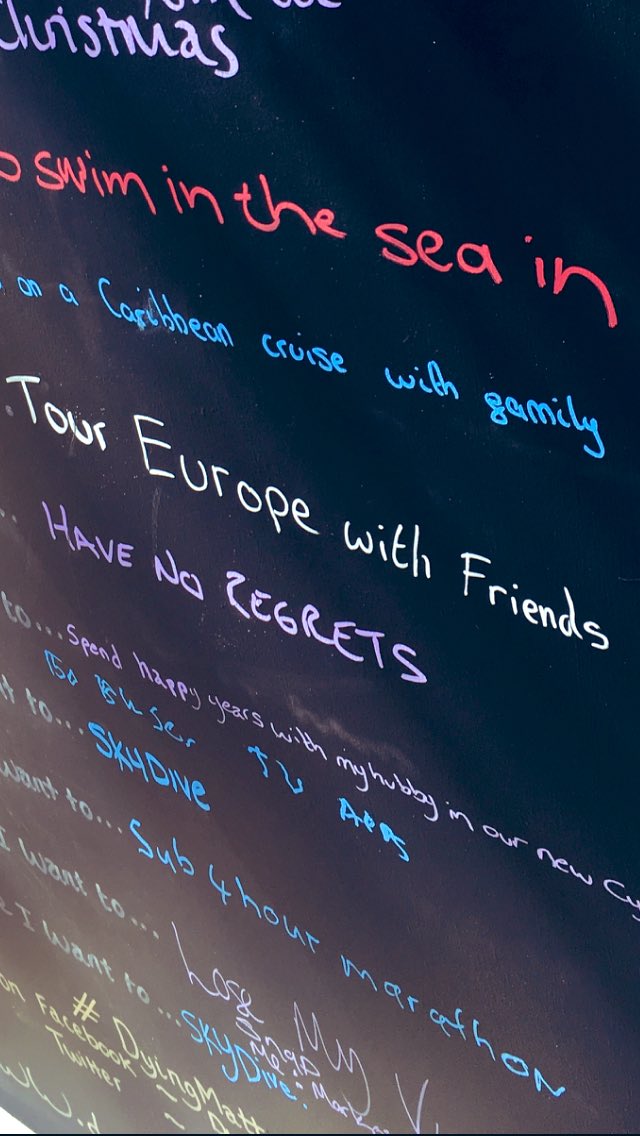 Christmas
swim in the sea in
on a Caribbean cruise with gamily
Tour Europe with Friends
HAVE NO REGRETS
to... Spend happy years with my hubby in our new
to... SKYDIVE
want to... Sub 4 hour marathon
I want to... Lose My V
Snap
Me:
I want to... SKYDIVE.
# DyingMatt
on Facebook ~
Twitter ~